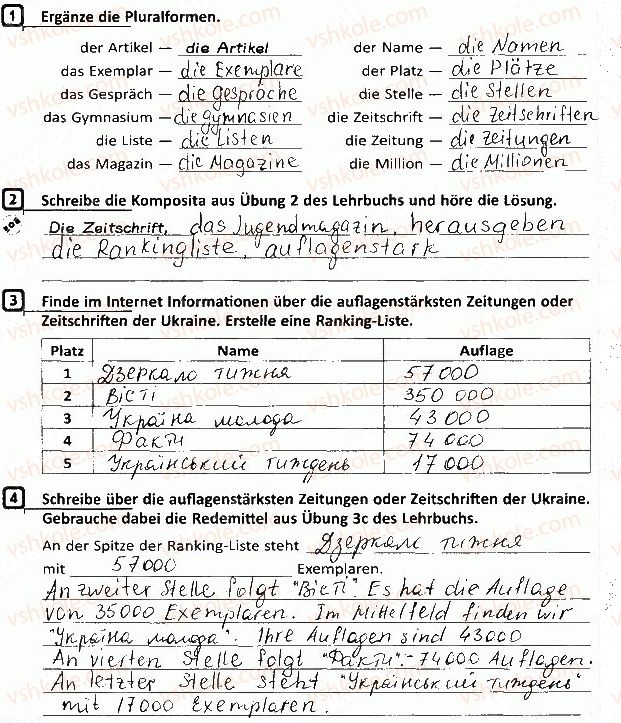 1 Ergänze die Pluralformen.
der Artikel — die Artikel
das Exemplar — die Exemplare
das Gespräch — die Gespräche
das Gymnasium — die gymnasien
die Liste — die Listen
das Magazin — die Magazine
der Name — die Namen
der Platz — die Plätze
die Stelle — die Stellen
die Zeitschrift — die Zeitschriften
die Zeitung — die Zeitungen
die Million — die Millionen
2 Schreibe die Komposita aus Übung 2 des Lehrbuchs und höre die Lösung.
Die Zeitschrift, das Jugendmagazin, herausgeben
die Rankingliste, auflagenstark
3 Finde im Internet Informationen über die auflagenstärksten Zeitungen oder
Zeitschriften der Ukraine. Erstelle eine Ranking-Liste.
Platz Name Auflage
1 Дзеркало тижня 57000
2 Вісті 350 000
3 Україна молода 43000
4 Факти 74000
5 Український тиждень 17000
4 Schreibe über die auflagenstärksten Zeitungen oder Zeitschriften der Ukraine.
Gebrauche dabei die Redemittel aus Übung 3c des Lehrbuchs.
An der Spitze der Ranking-Liste steht Дзеркало тижня
mit 57000 Exemplaren.
An zweiter Stelle folgt "Вісті". Es hat die Auflage
von 35000 Exemplaren. Im Mittelfeld finden wir
"Україна молода". Ihre Auflagen sind 43000
An vierten Stelle folgt "Факти" - 74000 Auflagen.
An letzter Stelle steht "Український тиждень"
mit 17000 Exemplaren.